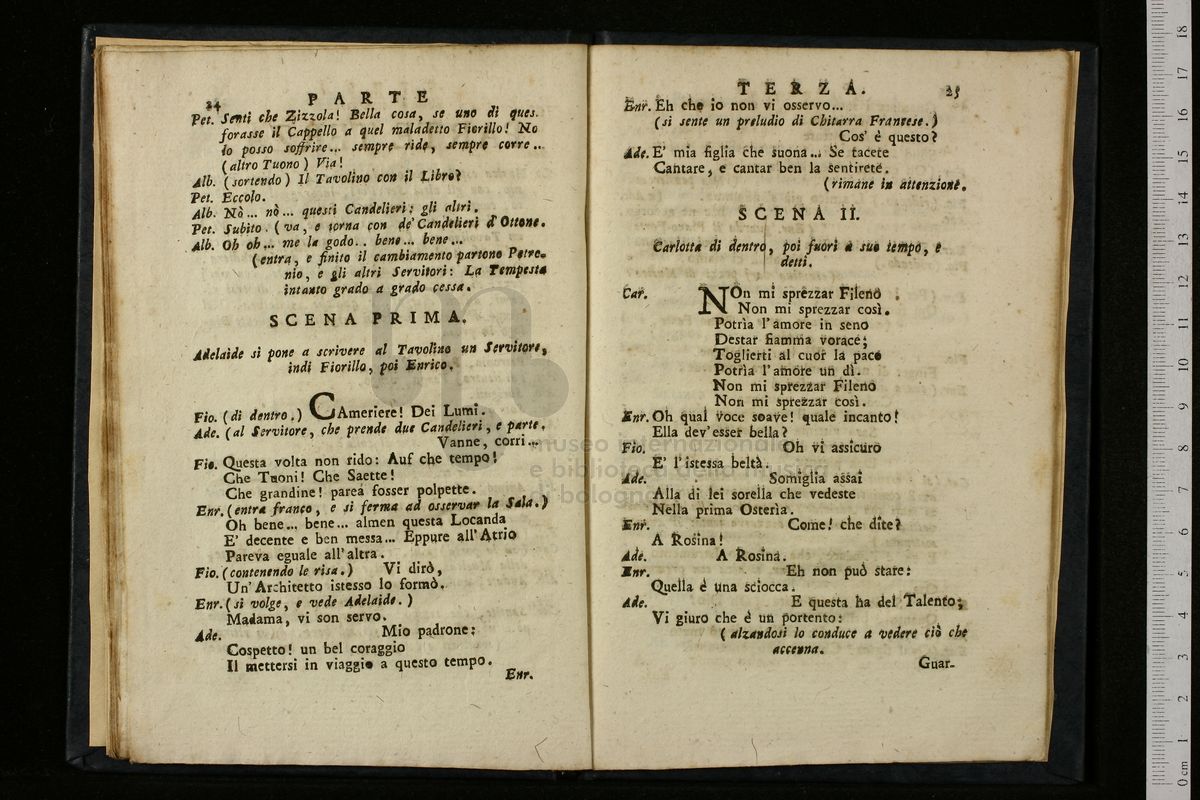 24 PARTE
Pet. Senti che Zizzola! Bella cosa, se uno di ques.
forasse il Cappello a quel maladetto Fiorillo! No
io posso soffrire... sempre ride, sempre corre...
(altro Tuono) Via!
Alb. (sortendo) Il Tavolino con il Libro?
Pet. Eccolo.
Alb. Nò... nò... questi Candelieri; gli altri.
Pet. Subito. (va, e torna con de' Candelieri d'Ottone.
Alb. Oh oh... me la godo.. bene... bene...
(entra, e finito il cambiamento partono Petro-
nio, e gli altri Servitori: La Tempesta
intanto grado a grado cessa.
SCENA PRIMA.
Adelaide si pone a scrivere al Tavolino un Servitore,
indi Fiorillo, poi Enrico.
Fio. (di dentro.) CAmeriere! Dei Lumi.
Ade. (al Servitore, che prende due Candelieri, e parte.
Vanne, corri...
Fio. Questa volta non rido: Auf che tempo!
Che Tuoni! Che Saette!
Che grandine! parea fosser polpette.
Enr. (entra franco, e si ferma ad osservar la Sala.)
Oh bene... bene... almen questa Locanda
E' decente e ben messa... Eppure all'Atrio
Pareva eguale all'altra.
Fio. (contenendo le risa.) Vi dirò,
Un' Architetto istesso lo formò.
Enr. (si volge, e vede Adelaide.)
Madama, vi son servo.
Ade. Mio padrone:
Cospetto! un bel coraggio
Il mettersi in viaggio a questo tempo.
Enr.
TERZA. 25
Enr. Eh che io non vi osservo...
(si sente un preludio di Chitarra Franzese.)
Cos' è questo?
Ade. E' mia figlia che suona... Se tacete
Cantare, e cantar ben la sentirete.
(rimane in attenzione.
SCENA II.
Carlotta di dentro, poi fuori a suo tempo, e
detti.
Car. NOn mi sprezzar Fileno
Non mi sprezzar così.
Potrìa l'amore in seno
Destar fiamma vorace;
Toglierti al cuor la pace
Potrìa l'amore un dì.
Non mi sprezzar Fileno
Non mi sprezzar così.
Enr. Oh qual voce soave! quale incanto!
Ella dev'esser bella?
Fio. Oh vi assicuro
E' l'istessa beltà.
Ade. Somiglia assai
Alla di lei sorella che vedeste
Nella prima Osterìa.
Enr. Come! che dite?
A Rosina!
Ade. A Rosina.
Enr. Eh non può stare:
Quella è una sciocca.
Ade. E questa ha del Talento;
Vi giuro che è un portento:
(alzandosi lo conduce a vedere ciò che
accenna.
Guar-
museo internazionale
e biblioteca della musica
di bologna
0 cm 1 2 3 4 5 6 7 8 9 10 11 12 13 14 15 16 17 18